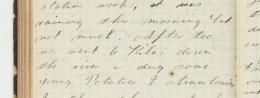 station work, it was
raining this morning but
not much. After tea
we went to down
the river & dug some
young Potatoes & strawberries